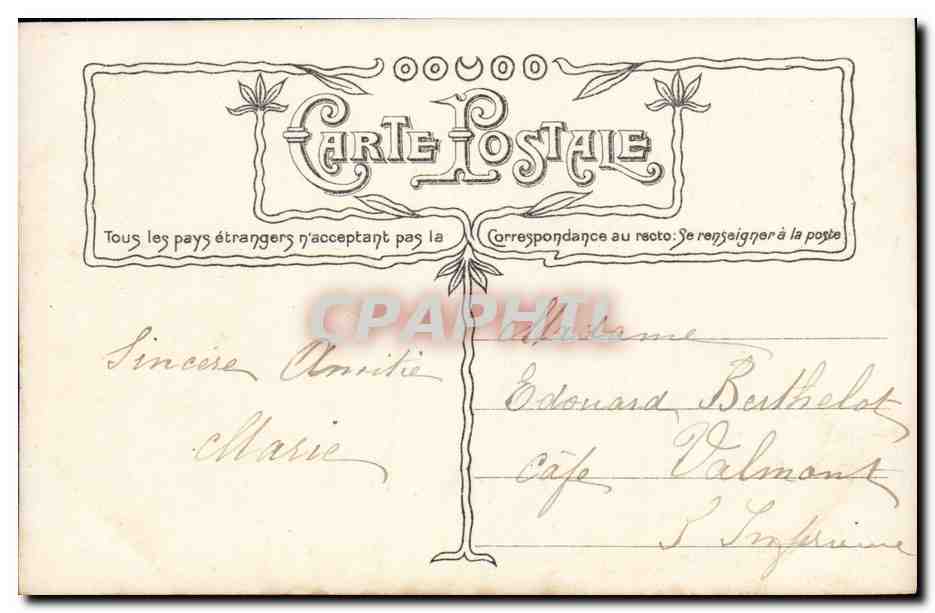 CARTE POSTALE
Tous les pays étrangers n'acceptant pas la Correspondance au recto: Se renseigner à la poste
CPAPHIL
Sincère Amitié
Marie
Madame
Edouard Berthelot
Câfe Valmont